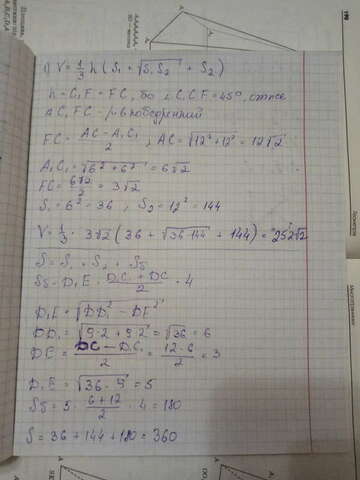 1) V = 1/3 h (S₁ + √S₁S₂ + S₂)
h = C₁F = FC, бо ∠C₁CF = 45°, отже
AC₁FC - рівнобедрений
FC = (AC - A₁C₁)/2 ; AC = √12² + 12² = 12√2
A₁C₁ = √6² + 6² = 6√2
FC = 6√2/2 = 3√2
S₁ = 6² = 36 ; S₂ = 12² = 144
V = 1/3 · 3√2 (36 + √36·144 + 144) = 252√2
S = S₁ + S₂ + Sδ
Sδ = D₁E · (D₁C₁ + DC)/2 · 4
D₁E = √DD₁² - DE²
DD₁ = √9·2 + 9·2 = √36 = 6
DE = (DC - D₁C₁)/2 = (12-6)/2 = 3
D₁E = √36 - 9 = 5
Sδ = 5 · (6+12)/2 · 4 = 180
S = 36 + 144 + 180 = 360